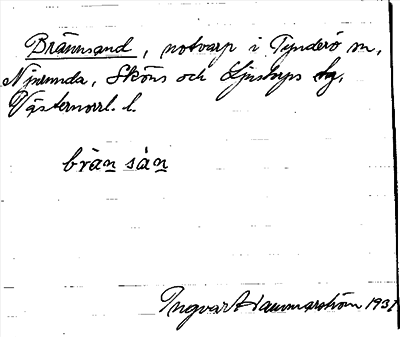 Brännsand, notvarp i Tynderö sn,
Njurunda, Sköns och Ljustorps tg,
Västernorrl. l.
brän sàn
Ingvar Hammarström